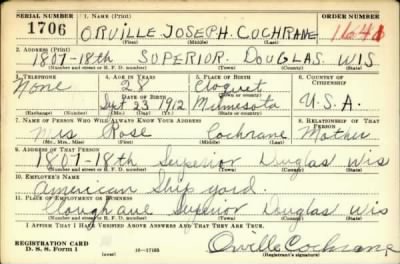 SERIAL NUMBER 1. NAME (Print) ORDER NUMBER
1706 ORVILLE JOSEPH COCHRANE 1641
(First) (Middle) (Last)
2. ADDRESS (Print)
1807-18th SUPERIOR. DOUGLAS. WIS
(Number and street or R. F. D. number) (Town) (County) (State)
3. TELEPHONE 4. AGE IN YEARS 5. PLACE OF BIRTH 6. COUNTRY OF CITIZENSHIP
None 28 Cloquet
DATE OF BIRTH (Town or county)
Sept 23 1912 Minnesota U.S.A.
(Exchange) (Number) (Mo.) (Day) (Yr.) (State or country)
7. NAME OF PERSON WHO WILL ALWAYS KNOW YOUR ADDRESS 8. RELATIONSHIP OF THAT PERSON
Mrs Rose Cochrane Mother
(Mr., Mrs., Miss) (First) (Middle) (Last)
9. ADDRESS OF THAT PERSON
1807-18th Superior Douglas Wis
(Number and street or R. F. D. number) (Town) (County) (State)
10. EMPLOYER'S NAME
American Ship yard.
11. PLACE OF EMPLOYMENT OR BUSINESS
Clough ave Superior Douglas Wis
(Number and street or R. F. D. number) (Town) (County) (State)
I AFFIRM THAT I HAVE VERIFIED ABOVE ANSWERS AND THAT THEY ARE TRUE.
REGISTRATION CARD
D. S. S. Form 1 (over) 16-17105 Orville Cochrane
(Registrant's signature)